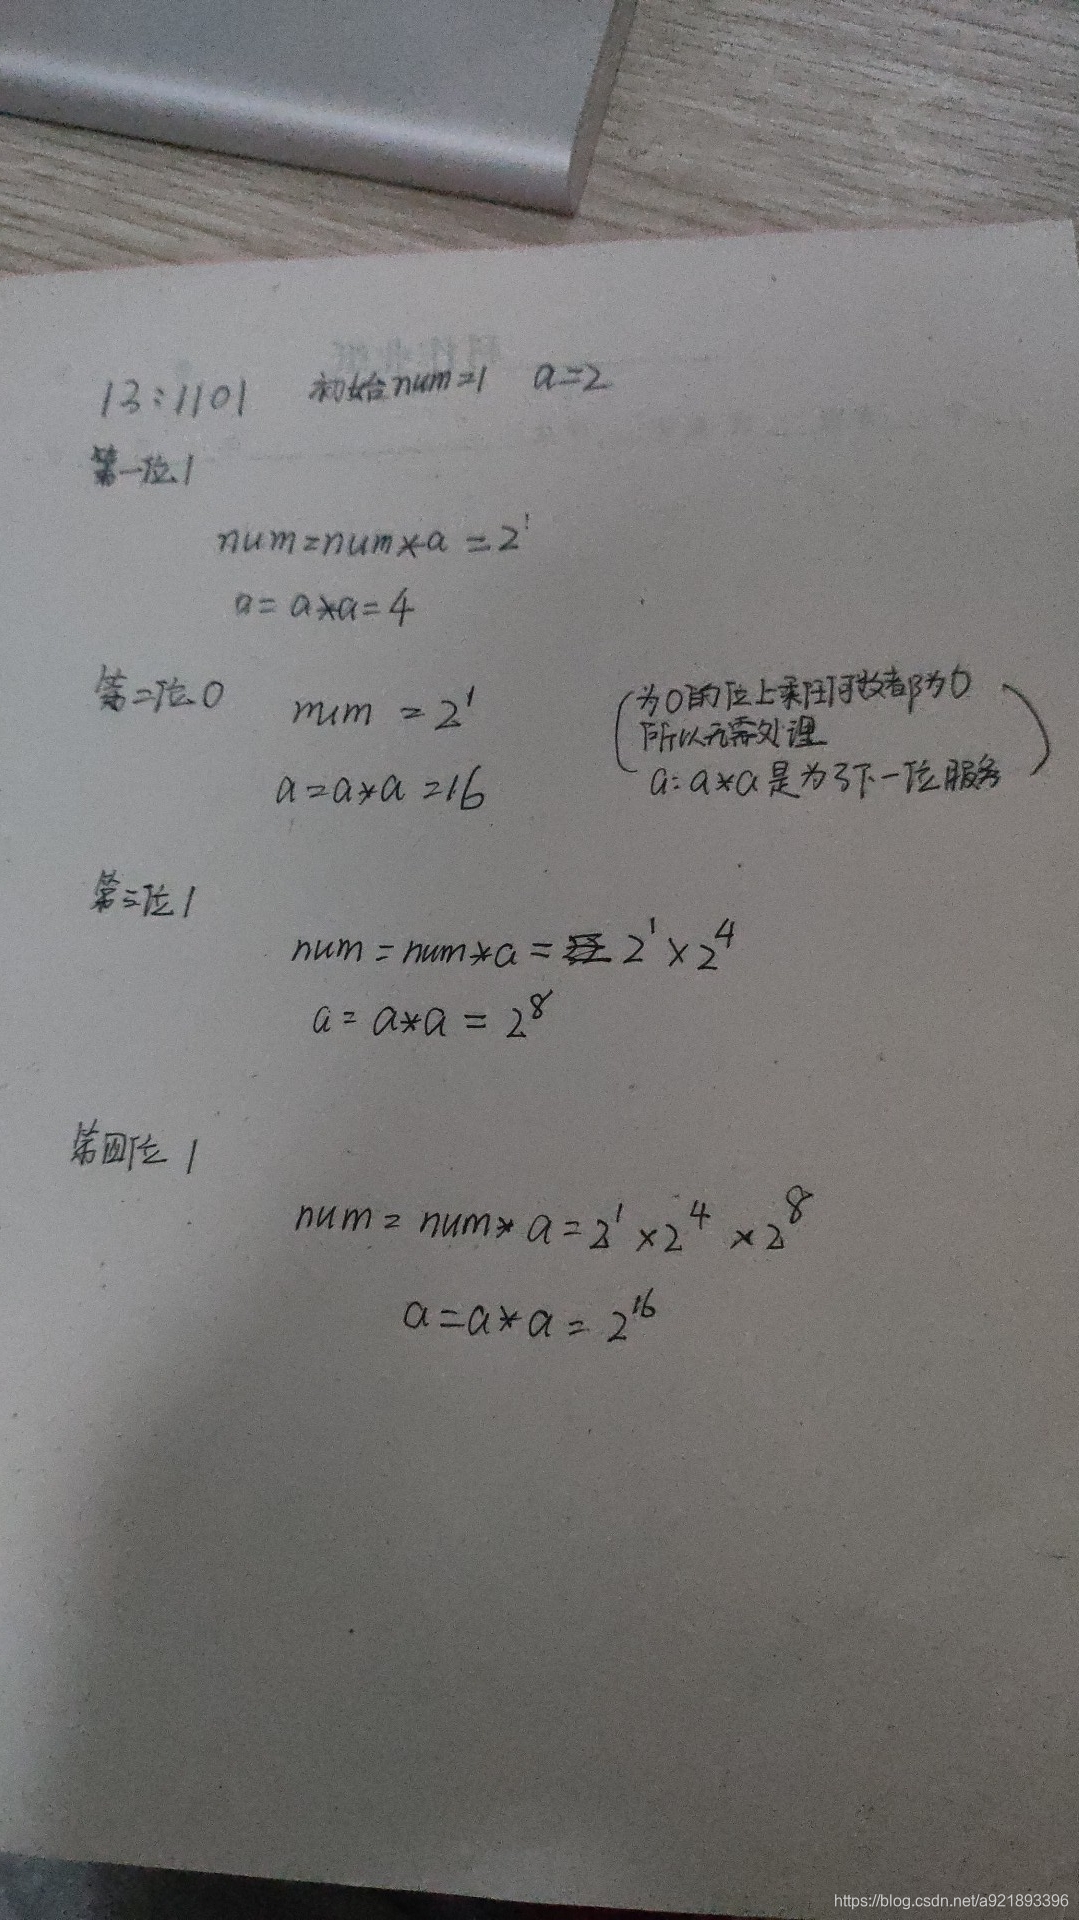 13:1101 初始num=1 a=2
第一位1
num=num*a=2¹
a=a*a=4
第二位0
num=2¹
a=a*a=16
(为0的位上乘任何数都为0
所以无需处理
a=a*a是为了下一位服务)
第三位1
num=num*a=2¹×2⁴
a=a*a=2⁸
第四位1
num=num*a=2¹×2⁴×2⁸
a=a*a=2¹⁶
https://blog.csdn.net/a921893396